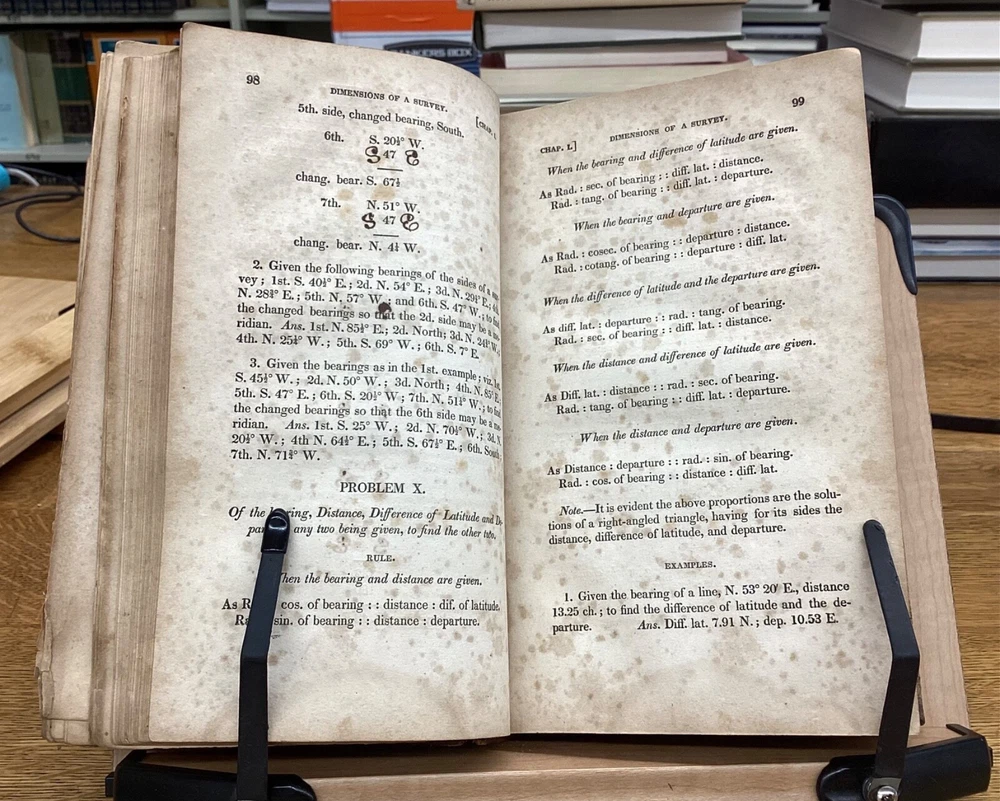 98
DIMENSIONS OF A SURVEY.
[CHAP. I.
5th. side, changed bearing, South.
6th. S. 20½° W.
S 47 E
chang. bear. S. 67½
7th. N. 51° W.
S 47 E
chang. bear. N. 4¼ W.
2. Given the following bearings of the sides of a
vey; 1st. S. 40½° E.; 2d. N. 54° E.; 3d. N. 29¾° E.; 4th
N. 28¾° E.; 5th. N. 57° W.; and 6th. S. 47° W.; to find
the changed bearings so that the 2d. side may be a
ridian. Ans. 1st. N. 85½° E.; 2d. North; 3d. N. 24¼° W.
4th. N. 25¼° W.; 5th. S. 69° W.; 6th. S. 7° E.
3. Given the bearings as in the 1st. example; viz. 1st.
S. 45½° W.; 2d. N. 50° W.; 3d. North; 4th. N. 85° E.
5th. S. 47° E.; 6th. S. 20½° W.; 7th. N. 51¼° W.; to find
the changed bearings so that the 6th side may be a
ridian. Ans. 1st. S. 25° W.; 2d. N. 70½° W.; 3d. N.
20½° W.; 4th N. 64½° E.; 5th. S. 67½° E.; 6th. South
7th. N. 71¾° W.
PROBLEM X.
Of the ring, Distance, Difference of Latitude and De-
par any two being given, to find the other two.
RULE.
hen the bearing and distance are given.
As R cos. of bearing : : distance : dif. of latitude.
Ra sin. of bearing : : distance : departure.
99
CHAP. I.] DIMENSIONS OF A SURVEY.
When the bearing and difference of latitude are given.
As Rad. : sec. of bearing : : diff. lat. : distance.
Rad. : tang. of bearing : : diff. lat. : departure.
When the bearing and departure are given.
As Rad. : cosec. of bearing : : departure : distance.
Rad. : cotang. of bearing : : departure : diff. lat.
When the difference of latitude and the departure are given.
As diff. lat. : departure : : rad. : tang. of bearing.
Rad. : sec. of bearing : : diff. lat. : distance.
When the distance and difference of latitude are given.
As Diff. lat. : distance : : rad. : sec. of bearing.
Rad. : tang. of bearing : : diff. lat. : departure.
When the distance and departure are given.
As Distance : departure : : rad. : sin. of bearing.
Rad. : cos. of bearing : : distance : diff. lat.
Note.—It is evident the above proportions are the solu-
tions of a right-angled triangle, having for its sides the
distance, difference of latitude, and departure.
EXAMPLES.
1. Given the bearing of a line, N. 53° 20′ E., distance
13.25 ch.; to find the difference of latitude and the de-
parture. Ans. Diff. lat. 7.91 N.; dep. 10.53 E.
ANKERS BOX